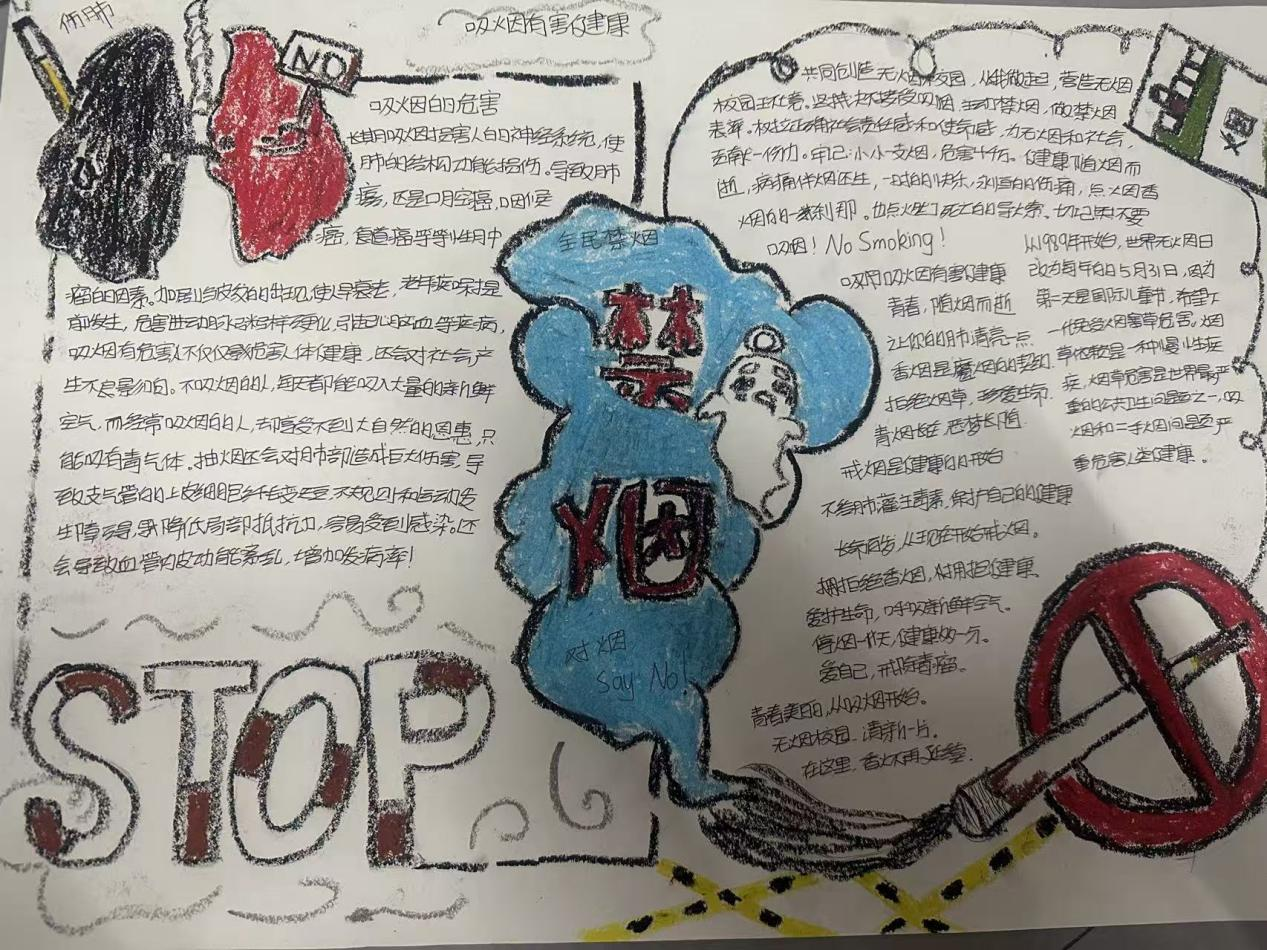 伤肺
吸烟有害健康
NO
吸烟的危害
长期吸烟损害人的神经系统,使
肺的结构功能损伤。导致肺
癌,还是口腔癌,咽喉
癌,食道癌等等
癌的因素。加剧皮纹的出现,使人早衰去,老年痴呆提
前发生,危害性动脉粥样硬化,引起心脑血等疾病,
吸烟有危害不仅仅是危害人体健康,还会对社会产
生不良影响。不吸烟的人,每天都能吸入大量的新鲜
空气,而经常吸烟的人,却享受不到大自然的恩惠,只
能吸有毒气体。抽烟还会对肺部造成巨大伤害,导
致支气管的上皮细胞纤毛变短,不规则和运动发
生障碍,易降低局部抵抗力,容易受到感染。还
会导致血管内皮功能紊乱,增加发病率!
STOP
全民禁烟
禁
烟
对烟
say No!
共同创造无烟校园,从我做起,营造无烟
校园。坚持决不接受吸烟,主动禁烟,做禁烟
表率。树立正确社会责任感和使命感,为无烟和社会,
贡献一份力。牢记:小小一支烟,危害。健康随烟而
逝,病痛伴烟还生,一时的快乐,永恒的伤痛,点烟
烟的一刹那。也点燃了死亡的导火索。切记不要
吸烟!No Smoking!
烟
从1989年开始,世界无烟日
改为每年的5月31日,因为
第二天是国际儿童节,希望下
一代免受烟草危害。烟
草依赖是一种慢性疾
病,烟草危害是世界最严
重的公共卫生问题之一,吸
烟和二手烟问题严
重危害人类健康。
吸烟有害健康
青春,随烟而逝
让你的肺清亮一点
香烟是魔烟的契约
拒绝烟草,珍爱生命
青烟长往,恶梦长随
戒烟是健康的开始
不给肺灌生毒素,保护自己的健康
长命百岁,从现在开始戒烟。
拥拒绝香烟,对拥抱健康
爱护生命,呼吸新鲜空气。
停烟一天,健康的一分。
爱自己,戒除毒瘤。
青春美日,从吸烟开始。
无烟校园 清新一片。
在这里,香火不再延续。